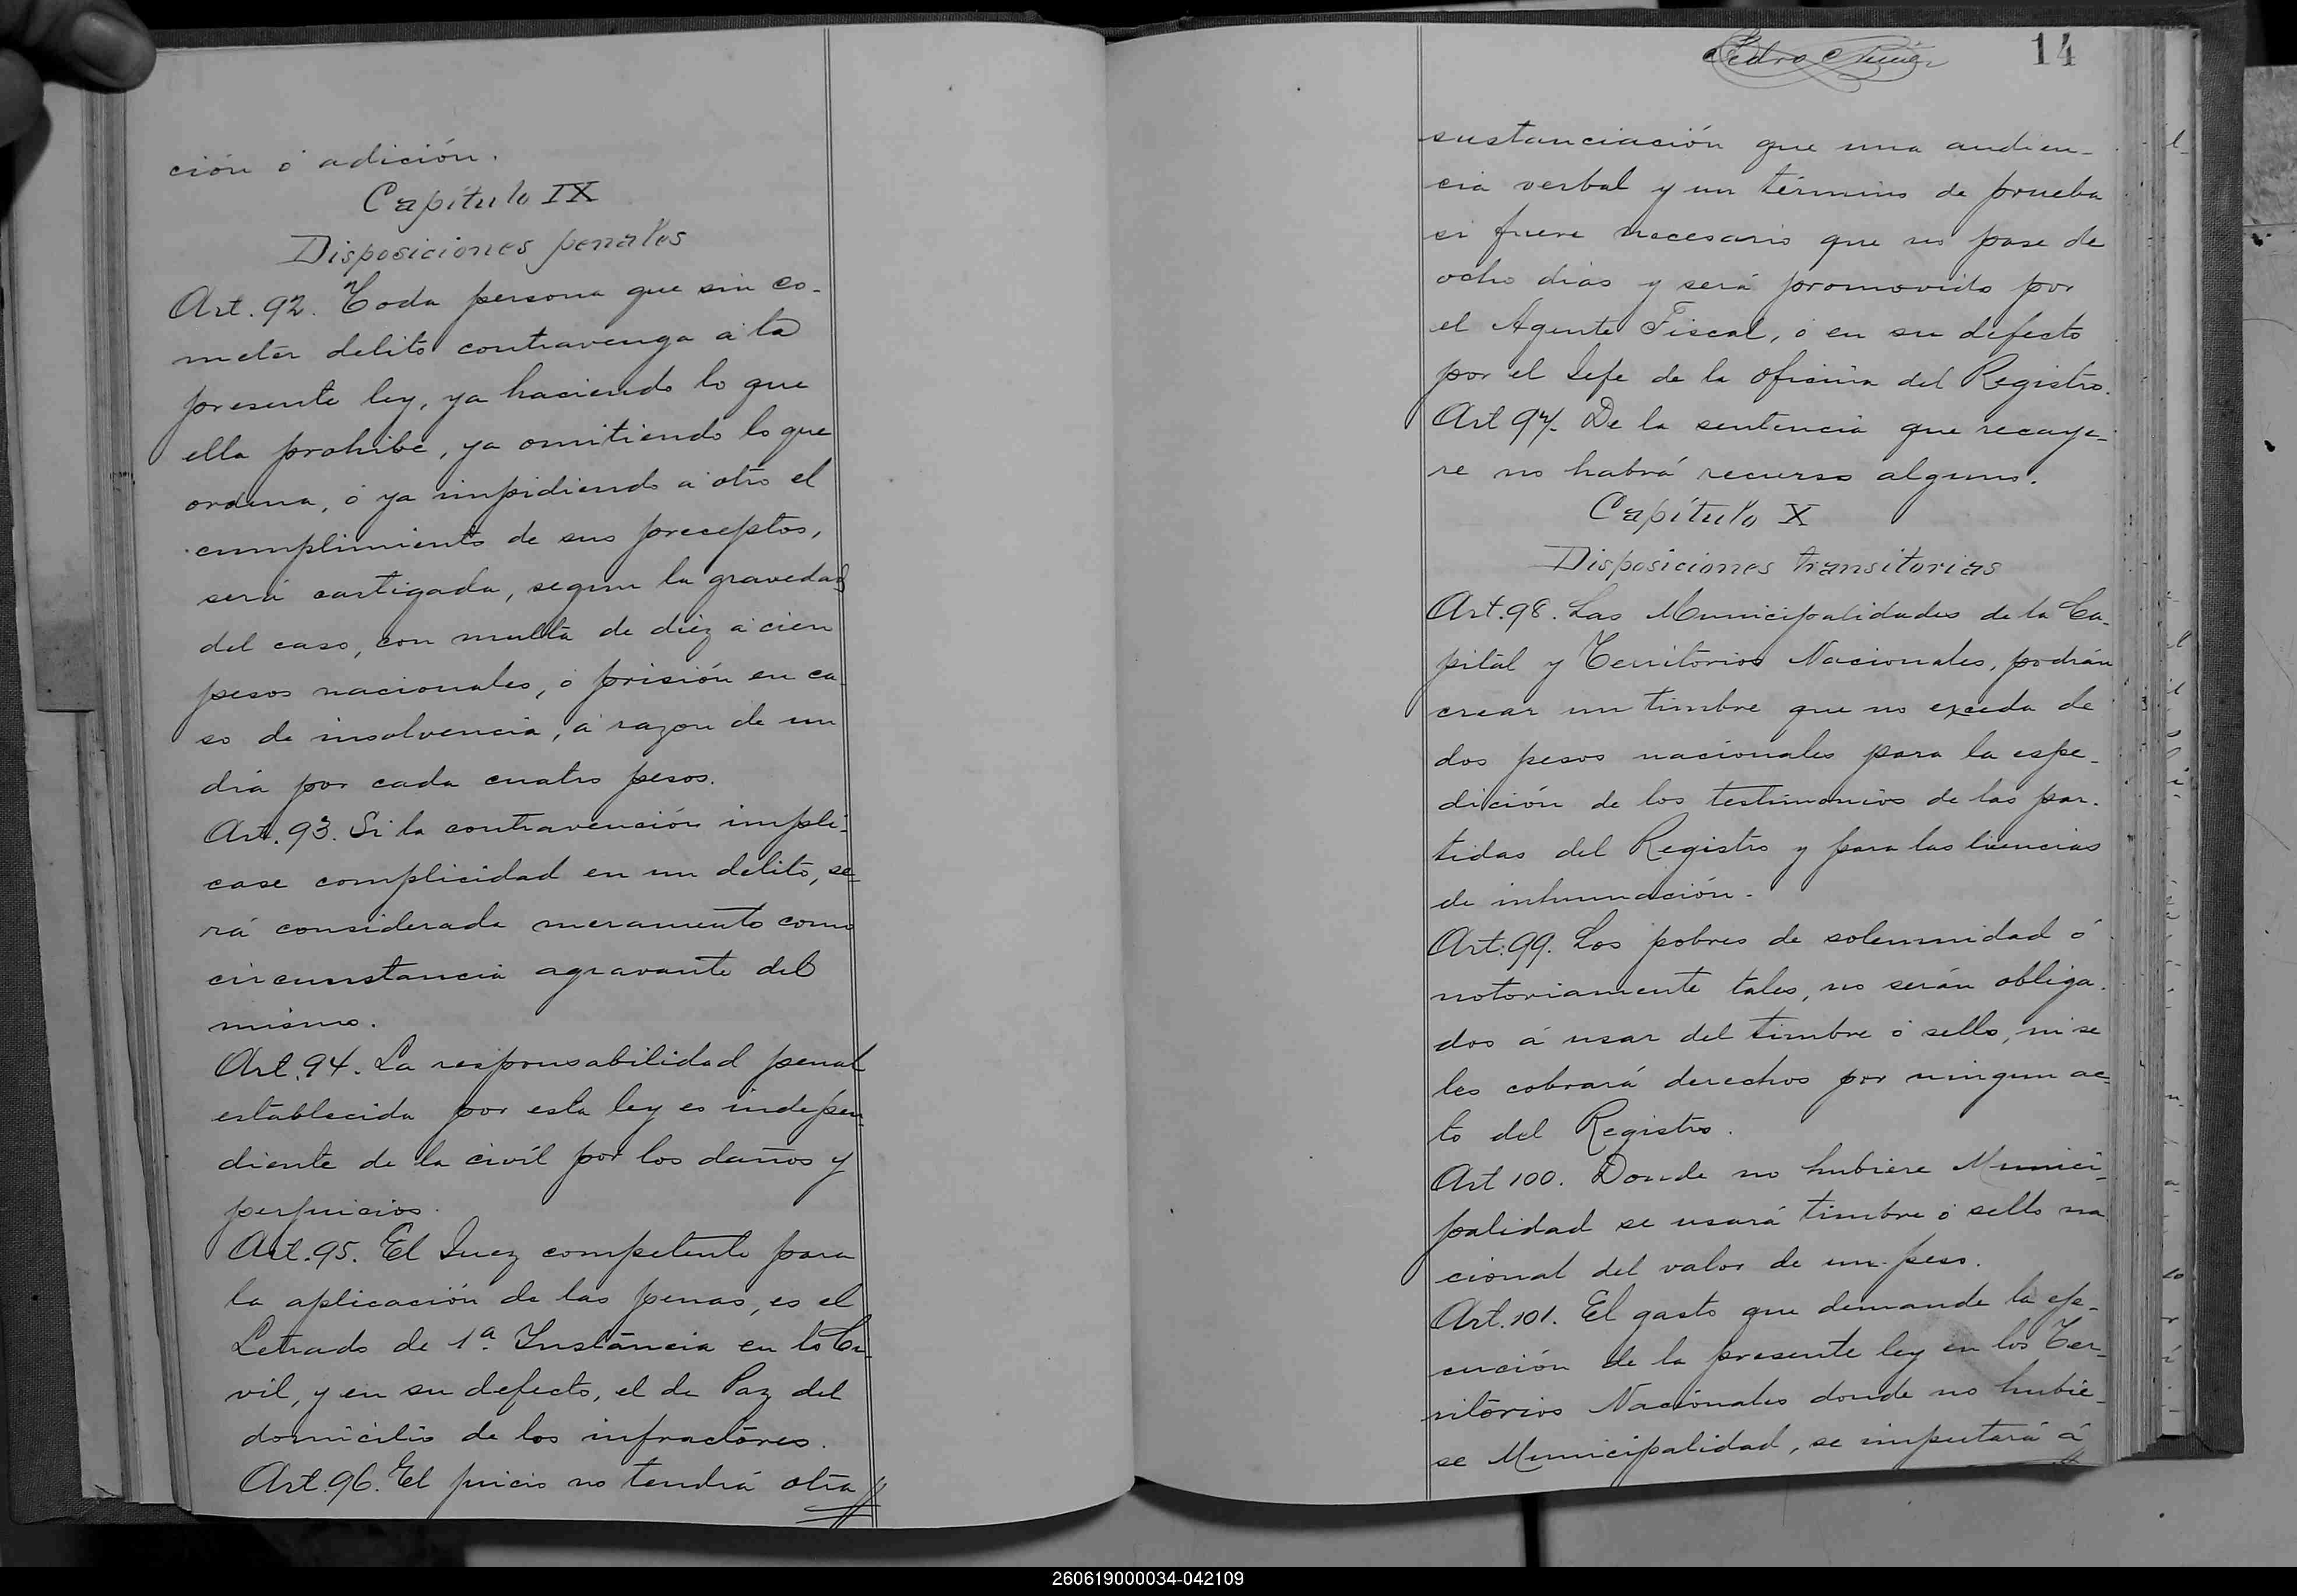 ción ó adición.
Capítulo IX
Disposiciones penales
Art. 92. Toda persona que sin co-
meter delito contravenga á la
presente ley, ya haciendo lo que
ella prohibe, ya omitiendo lo que
ordena, ó ya impidiendo á otro el
cumplimiento de sus preceptos,
será castigada, segun la gravedad
del caso, con multa de diez á cien
pesos nacionales, ó prisión en ca-
so de insolvencia, á razon de un
dia por cada cuatro pesos.
Art. 93. Si la contravención impli-
case complicidad en un delito, se-
rá considerada meramente como
circunstancia agravante del
mismo.
Art. 94. La responsabilidad penal
establecida por esta ley es indepen-
diente de la civíl por los daños y
perjuicios.
Art. 95. El Juez competente para
la aplicación de las penas, es el
Letrado de 1ª. Instancia en lo Ci-
vil, y en su defecto, el de Paz del
domicilio de los infractores.
Art. 96. El juicio no tendrá otra
Pedro 14
sustanciación que una audien-
cia verbal y un término de prueba
si fuere necesario que no pase de
ocho dias y será promovido por
el Agente Fiscal, ó en su defecto
por el Jefe de la oficina del Registro.
Art 97. De la sentencia que recaye-
re no habrá recurso alguno.
Capítulo X
Disposiciones transitorias
Art. 98. Las Municipalidades de la Ca-
pital y Territorios Nacionales, podrán
crear un timbre que no exceda de
dos pesos nacionales para la espe-
dición de los testimonios de las par-
tidas del Registro y para las licencias
de inhumación.
Art. 99. Los pobres de solemnidad ó
notoriamente tales, no serán obliga-
dos á usar del timbre ó sello, ni se
les cobrará derechos por ningun ac-
to del Registro.
Art 100. Donde no hubiere Munici-
palidad se usará timbre ó sello na
cional del valor de un peso.
Art. 101. El gasto que demande la eje-
cución de la presente ley en los Ter-
ritorios Nacionales donde no hubie-
se Municipalidad, se imputará á
260619000034-042109